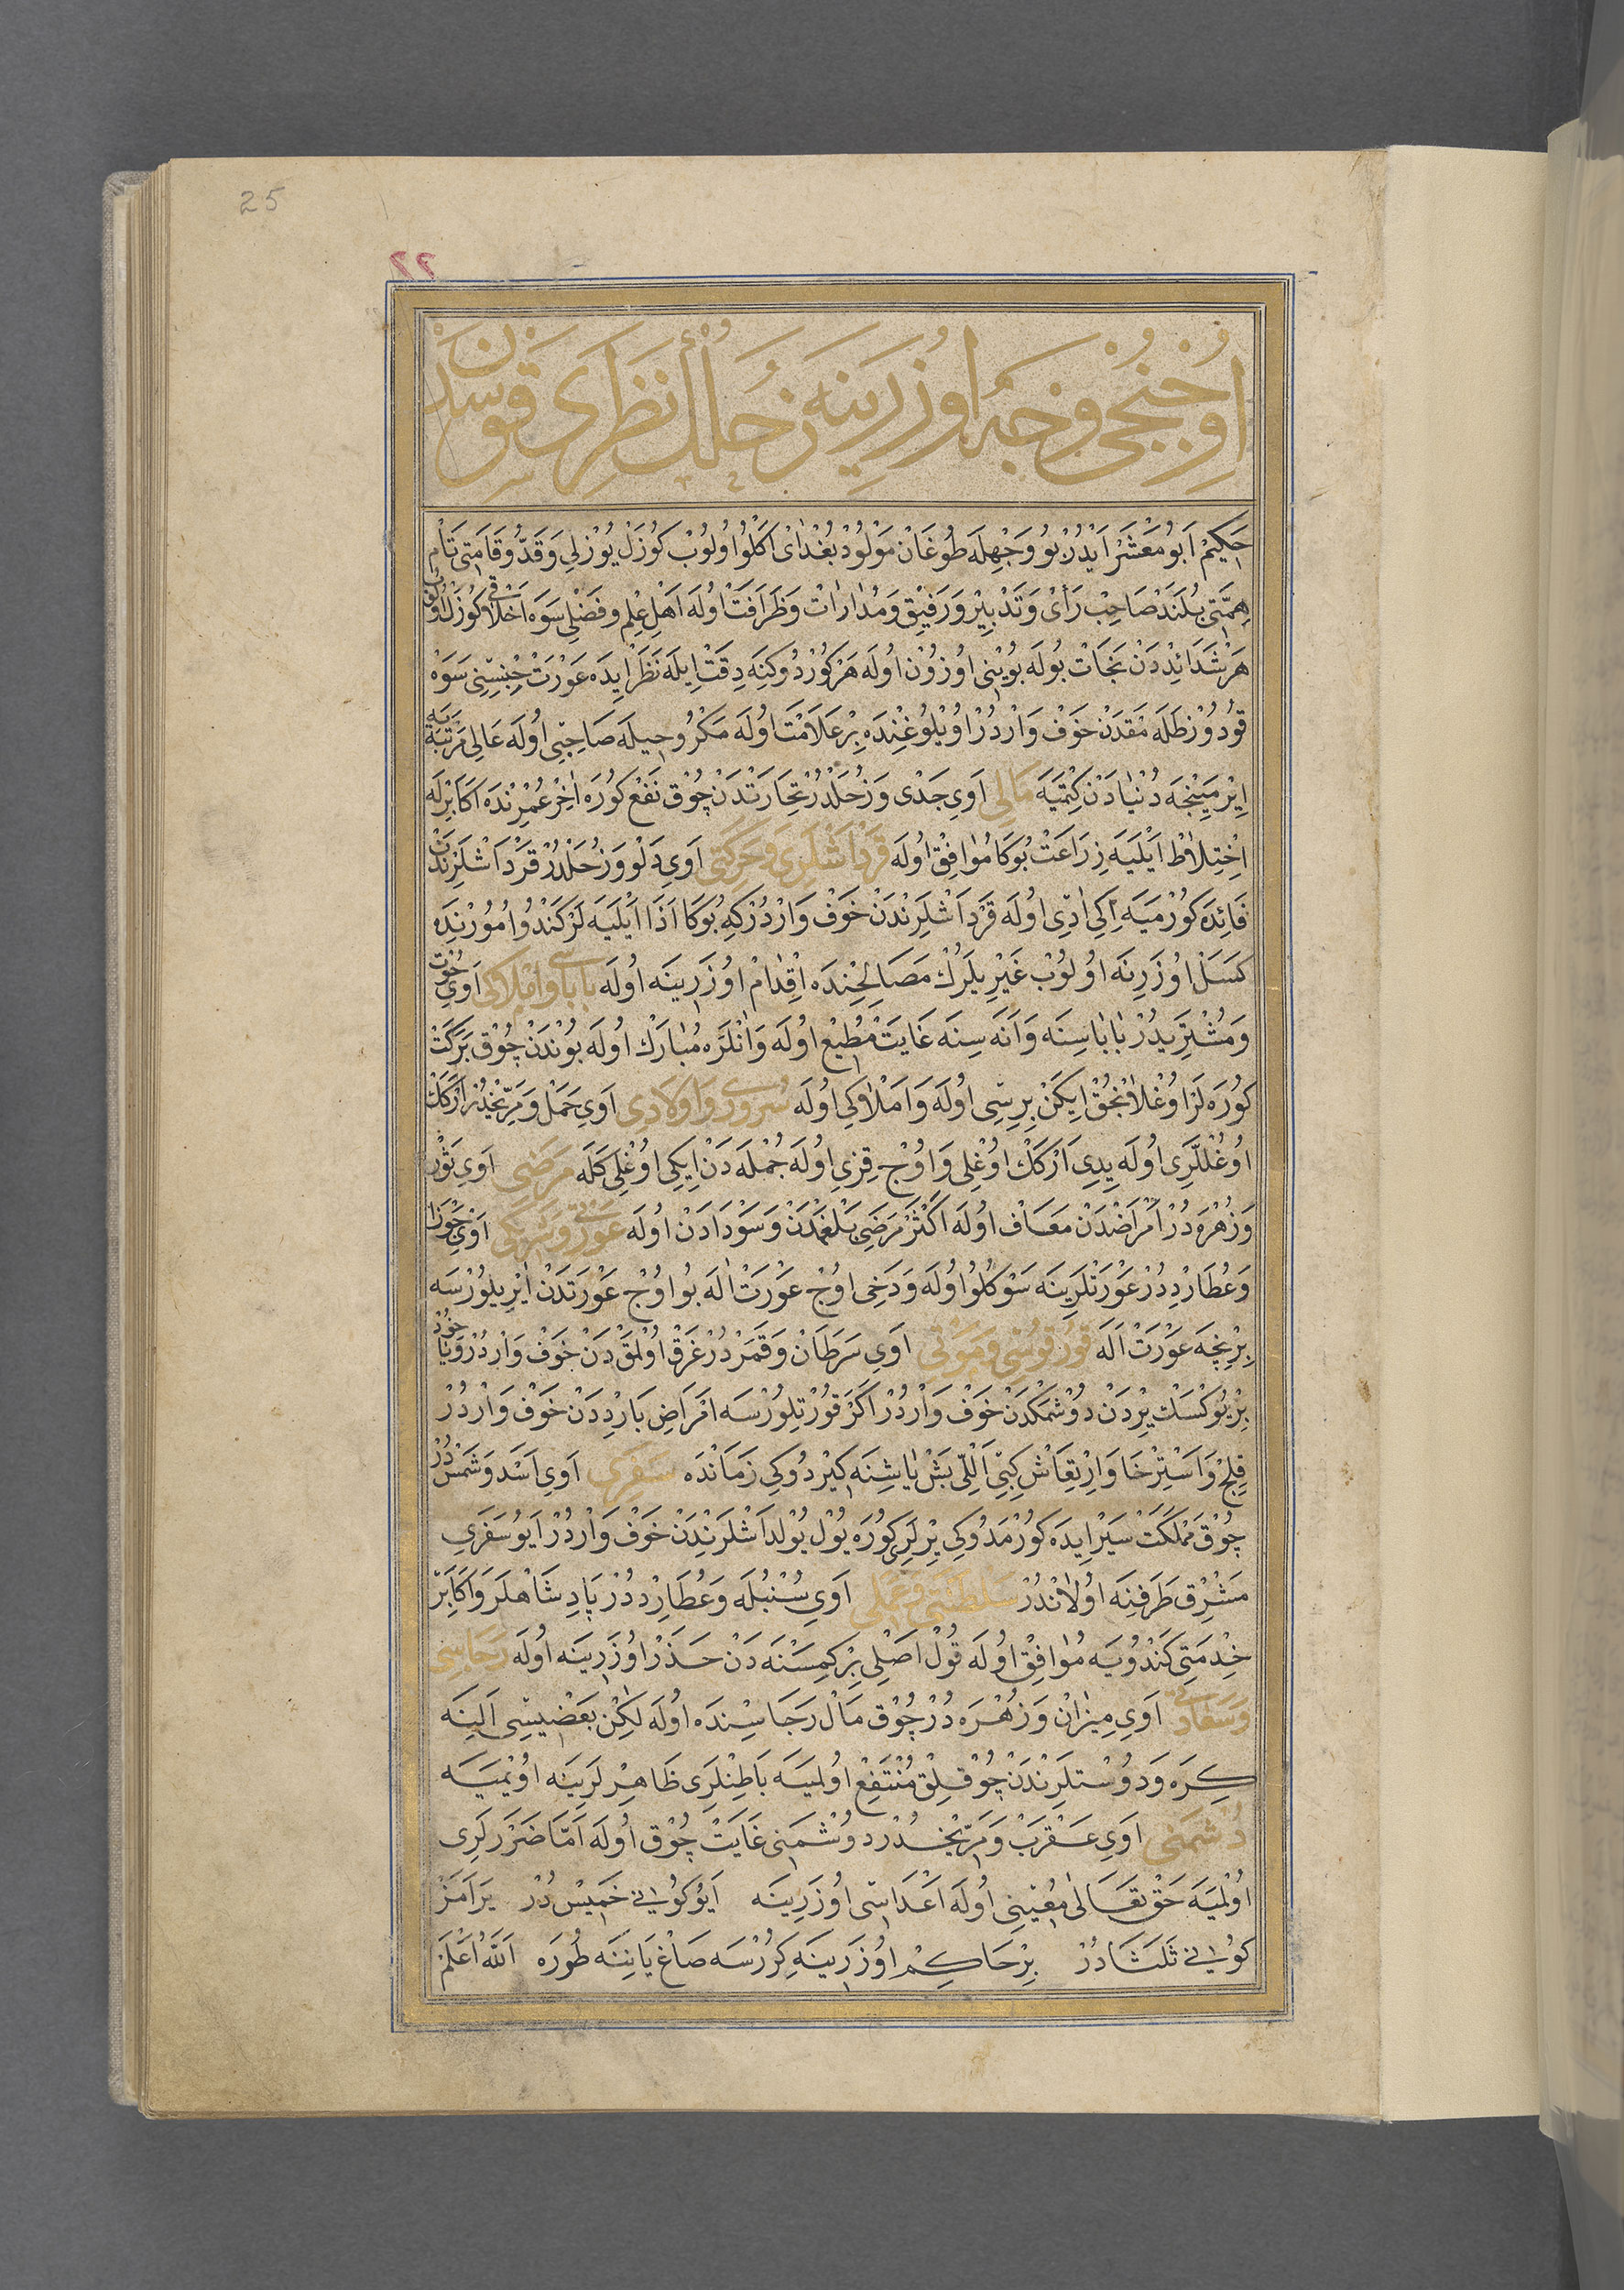 25
٢٢
اوُچُنْجِی وَجْهُ اوُزَرِینَه زُحَلُكْ نَظَرِی قَوْسَدَنْ
حَكِیمْ اَبُو مَعْشَرْ اَیْدُرْ بُو وَجْهِلَه طُوغَانْ مَوْلُودْ بُغْدَایْ اَكْلُوْ اوُلوُبْ كُوزَلْ یُوُزْلِی وَقَدُّ وقَامَتِی تَامْ
هِمَّتِی بُلَنَدْ صَاحِبْ رَأیُ وَتَدْبِیرْ وَرَفِیْقْ وَمُدَارَاتْ وَظَرَافَتْ اوُلَه اَهْلِ عِلْم وفَضْلِی سَوَه اخْلَاقِی كُوزَلْ اوُلُوبْ
هَرْ شَدَائِدْدَنْ نَجَاتْ بُولَه بُویْنِی اوُزُوُنْ اوُلَه هَرْ كُورْدُوكِنَه دِقَّتْ اِیلَه نَظَرْ اِیدَه عَوْرَتْ جِنْسِنِی سَوَهْ
قوُدُوُزْ طَلَهْ مَقْدَنْ خَوْفْ وَارْدُرْ اوُیْلُوغِنْدَه بِرْ عَلَامَتْ اوُلَه مَكْرُ وحِیلَه صَاحِبِی اوُلَه عَالِی مَرْتَبَهْ یَه
اِیْرْمَیِنْجَه دُنْیَادَنْ كِتْمَیَه مَالِی اَوِی جَدْی وَزُحَلْدُرْ تِجَارَتْدَنْ چُوقْ نَفْعْ كُورَه اٰخِرْ عُمْرِنْدَه اَكَابِرْلَه
اِخْتِلَاطْ اَیْلَیَه زِرَاعَتْ بُوكَا مُوَافِقْ اوُلَه قَرْدَاشْلَرِی وَحَرَكَتِی اَوِی دَلْو وَزُحَلْدُرْ قَرْدَاشْلَرِنْدَنْ
فَائِدَه كُورْمَیَه اِكِی اَدِّی اوُلَه قَرْدَاشْلَرِنْدَنْ خَوْفْ وَارْدُرْ كِهْ بُوكَا اَذَا اَیْلَیَه لَرْ كَنْدُو اُمُورْنَدَه
كَسَلْ اوُزَرِنَه اوُلوُبْ غَیْرِیلَرُكْ مَصَالِحِنْدَه اِقْدَامْ اوُزَرِینَه اوُلَه بَابَاسِی وَاَمْلَاكِی اَوِی حُوتْ
وَمُشْتَرِیدُرْ بَابَاسِنَه وَاَنَه سِنَه غَایَتْ مُطِیعْ اوُلَه وَانْلَرَه مُبَارَكْ اوُلَه بُونْدَنْ چُوقْ بَرَكَتْ
كُورَه لَرْ اوُغْلَانْجُقْ اِیكَنْ بِرِسِی اوُلَه وَاَمْلَاكِی اوُلَه سُرُورِی وَاَوْلَادِی اَوِی حَمَلْ وَمِرِّیخْدُرْ اَرْكَكْ
اوُغُلْلَرِی اوُلَه یِدِی اَرْكَكْ اوُغْلِی وَاوُچْ قِزِی اوُلَه جُمْلَه دَنْ اِیكِی اوُغْلِی كَلَه مَرَضِی اَوِی ثَوْرْ
وَزُهْرَه دُرْ اَمْرَاضْدَنْ مَعَافْ اوُلَه اَكْثَرْ مَرَضِی بَلْغَمْدَنْ وَسَوْدَادَنْ اوُلَه عَوْرَتِی وَشَرِیكِی اَوِی جَوْزَا
وَعُطَارِدْدُرْ عَوْرَتْلَرِینَه سَوْكُلُو اوُلَه وَدَخِی اوُچْ عَوْرَتْ اٰلَه بُو اوُچْ عَوْرَتَدَنْ اٰیْرِیلُورْسَه
بِرْنِچَه عَوْرَتْ اَلَه قوُرْقوُسِی وَمَوْتِی اَوِی سَرَطَانْ وَقَمَرْدُرْ غَرْقْ اوُلْمَقْدَنْ خَوْفْ وَارْدُرْ وَیَا خُودْ
بِرْ یُوكْسَكْ یِرْدَنْ دُوشْمَكْدَنْ خَوْفْ وَارْدُرْ اَكَرْ قُورْتِلُورْسَه اَمْرَاضِ بَارِدْدَنْ خَوْفْ وَارْدُرْ
فِلِجْ وَاَسْتِرْخَا وَارْتِعَاشْ كِبِی اَللِّی بَشْ یَاشِنَه كِیرْدُوكِی زَمَانْدَه سَفَرِی اَوِی اَسَدْ وَشَمْسْدُرْ
چُوقْ مَمْلَكَتْ سَیْرْ اِیدَه كُورْمَدُوكِی یِرْلَرِی كُورَه یُولْ یُولْدَاشْلَرِنْدَنْ خَوْفْ وَارْدُرْ اَیُو سَفَرِی
مَشْرِقْ طَرَفِنَه اوُلَانْدُرْ سَلْطَنَتِی وَعَمَلِی اَوِی سُنْبُلَه وَعُطَارِدْدُرْ پَادِشَاهْلَرْ وَاَكَابِرْ
خِدْمَتِی كَنْدُویَه مُوَافِقْ اوُلَه قُولْ اَصْلِی بِرْ كِمِسْنَه دَنْ حَذَرْ اوُزَرِینَه اوُلَه رَجَاسِی
وَسَعَادَتِی اَوِی مِیزَانْ وَزُهْرَه دُرْ چُوقْ مَالْ رَجَاسِنْدَه اوُلَه لٰكِنْ بَعْضِیسِی اَلِینَه
كِرَه وَدُوسْتلَرِنْدَنْ چُوقْلِقْ مُنْتَفِعْ اوُلمیَه بَاطِنْلَرِی ظَاهِرْلَرِینَه اوُیْمَیَه
دُشْمَنِی اَوِی عَقْرَبْ وَمِرِّیخْدُرْ دُوشْمَنِی غَایَتْ چُوقْ اوُلَه اَمَّا ضَرَرْلَرِی
اوُلْمَیَه حَقْ تَعَالٰی مُعِینِی اوُلَه اَعْدَاسِی اوُزَرِینَه اَیُو كُونِی خَمِیسْ دُرْ یَرَامَزْ
كُونِی ثَلَثَادُرْ بِرْ حَاكِمْ اوُزَرِینَه كِرُرْسَه صَاغْ یَانِنَه طُورَه اَللّٰهُ اَعْلَمْ